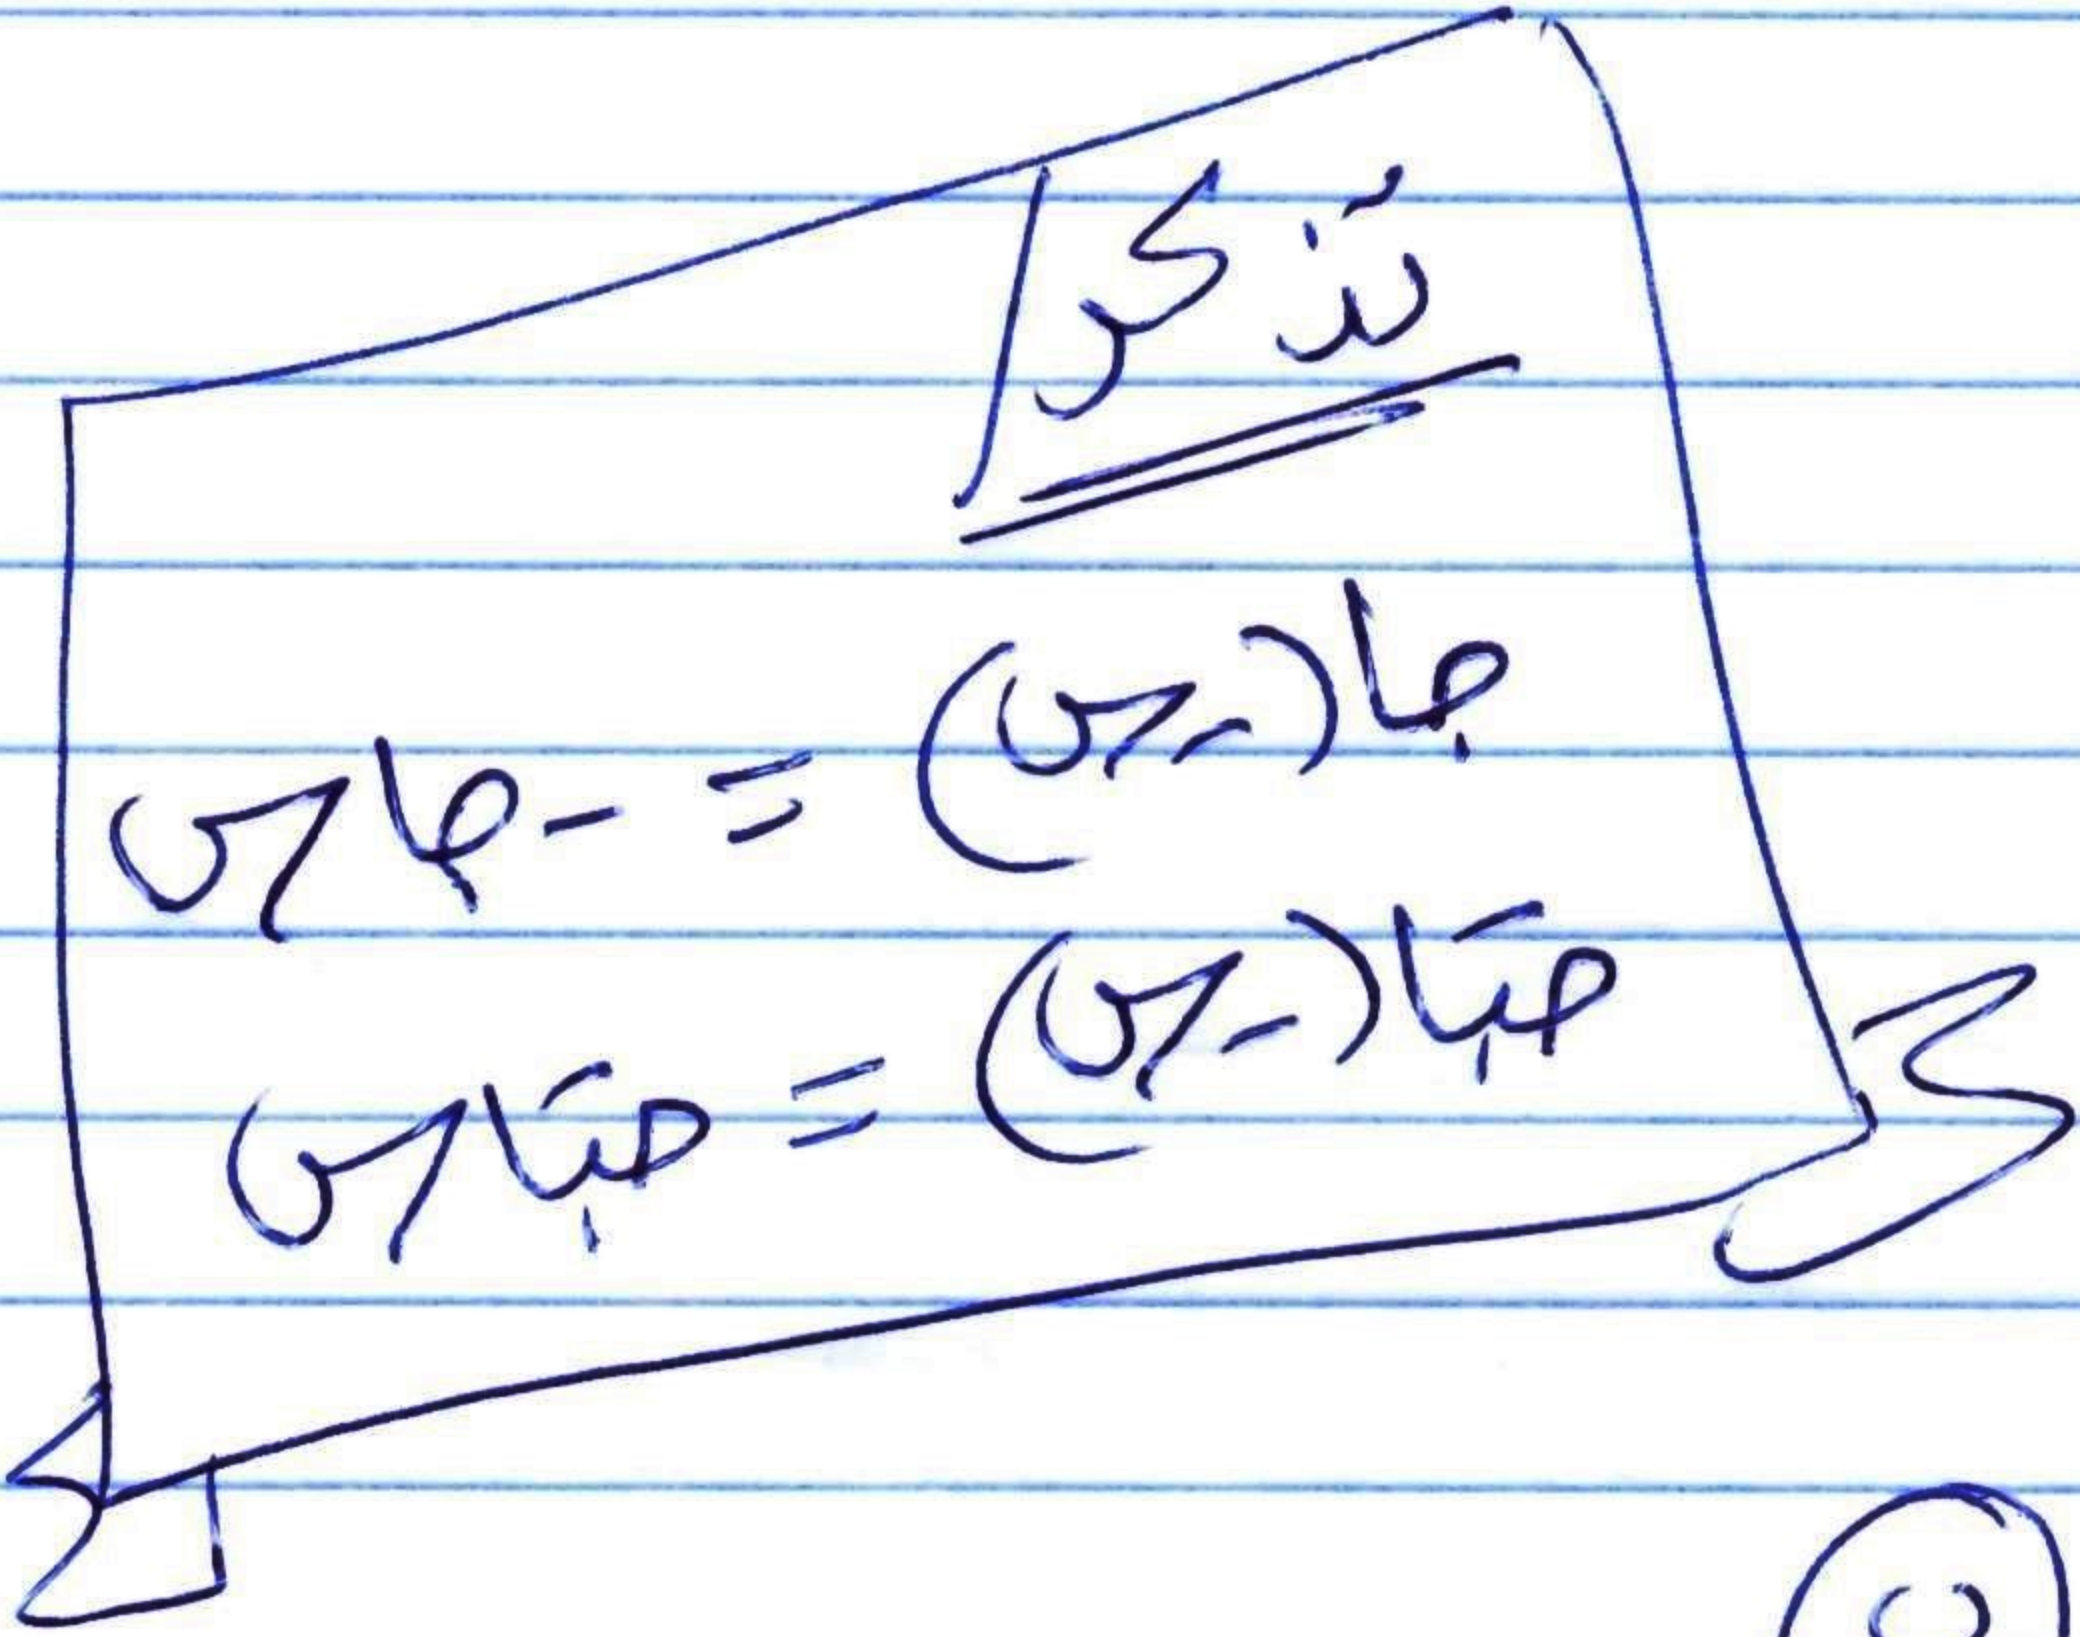 تذكر
جا(-س) = -جاس
جتا(-س) = جتاس